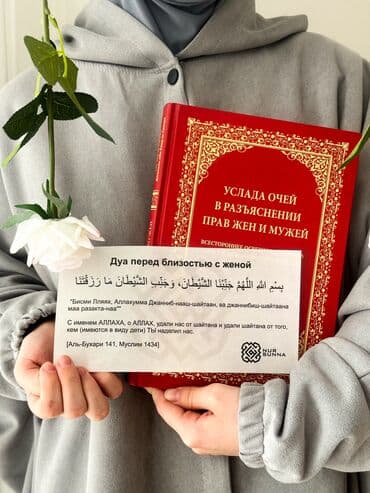 УСЛАДА ОЧЕЙ
В РАЗЪЯСНЕНИИ
ПРАВ ЖЕН И МУЖЕЙ
ВСЕСТОРОННЕЕ
Дуа перед близостью с женой
بِسْمِ اللهِ اللَّهُمَّ جَنِّبْنَا الشَّيْطَانَ، وَجَنِّبِ الشَّيْطَانَ مَا رَزَقْتَنَا
"Бисми Лляхи, Аллахумма Джанниб-нааш-шайтаан, ва джаннибиш-шайтаана
маа разакта-наа"
С именем АЛЛАХА, о АЛЛАХ, удали нас от шайтана и удали шайтана от того,
кем (имеются в виду дети) ТЫ наделил нас.
[Аль-Бухари 141, Муслим 1434]
NUR
SUNNA